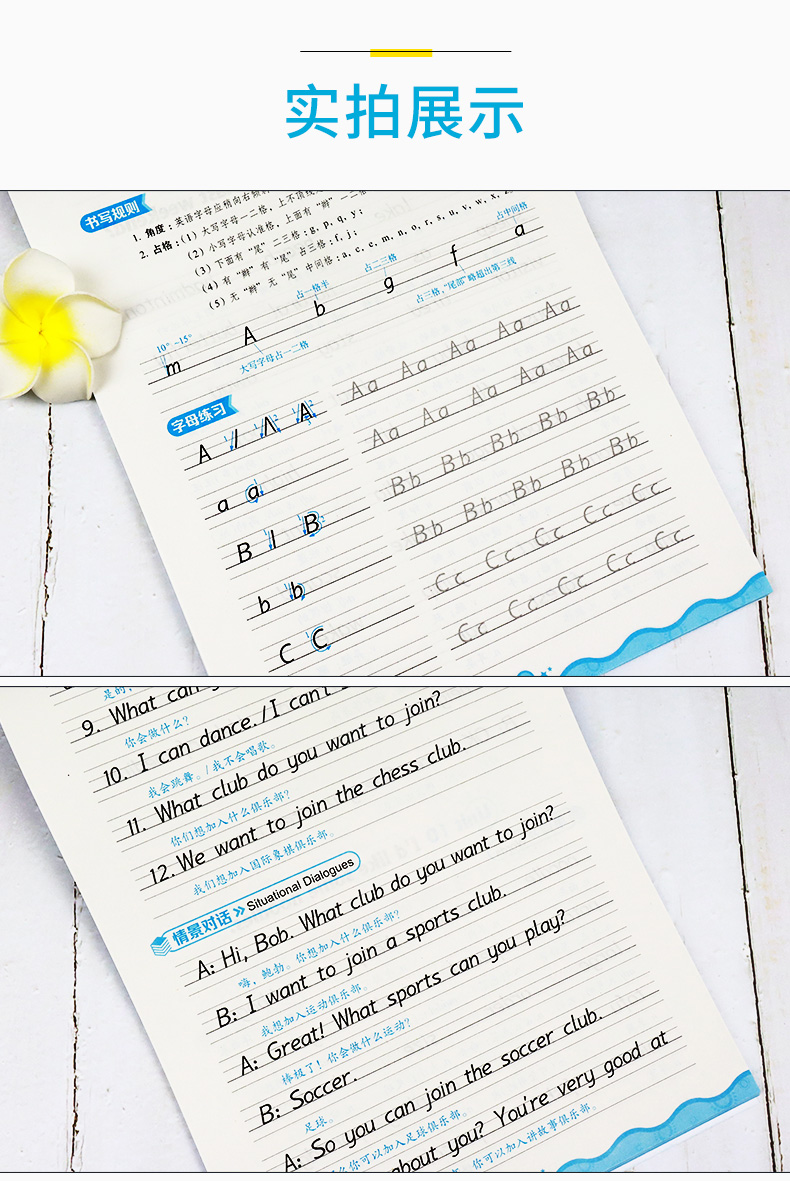 实拍展示
书写规则
1. 角度：英语字母应稍向右倾斜
2. 占格：(1) 大写字母一二格，上不顶线
(2) 小写字母认准格，上面有“辫”一二格
(3) 下面有“尾”二三格：g, p, q, y；
(4) 有“辫”有“尾”占三格：f, j；
(5) 无“辫”无“尾”中间格：a, c, e, m, n, o, r, s, u, v, w, x, z
10°~15°
占一格半
占二三格
占中间格
m A b g f a
大写字母占一二格
占三格，“尾部”略超出第三线
字母练习
A
a a
B B
b b
C C
Aa Aa Aa Aa Aa
Aa Aa Aa Aa Aa
Bb Bb Bb Bb Bb
Bb Bb Bb Bb Bb
Cc Cc Cc Cc Cc
Cc Cc Cc Cc Cc
是的，
9. What can
你会做什么？
10. I can dance. / I can't
我会跳舞。/ 我不会唱歌。
11. What club do you want to join?
你们想加入什么俱乐部？
12. We want to join the chess club.
我们想加入国际象棋俱乐部。
情景对话 Situational Dialogues
A: Hi, Bob. What club do you want to join?
嗨，鲍勃。你想加入什么俱乐部？
B: I want to join a sports club.
我想加入运动俱乐部。
A: Great! What sports can you play?
棒极了！你会做什么运动？
B: Soccer.
足球。
A: So you can join the soccer club.
么你可以加入足球俱乐部。
about you? You're very good at
你可以加入讲故事俱乐部。